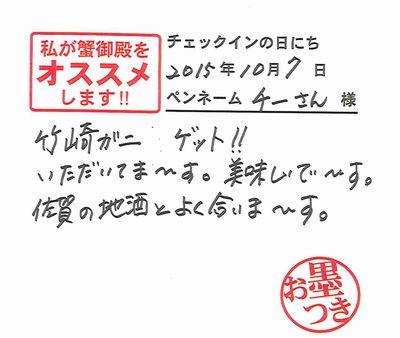 私が蟹御殿を
オススメ
します!!
チェックインの日にち
2015年10月7日
ペンネーム チーさん 様
竹崎ガニ ゲット!!
いただいてま〜す。美味しいで〜す。
佐賀の地酒とよく合いま〜す。
お墨つき